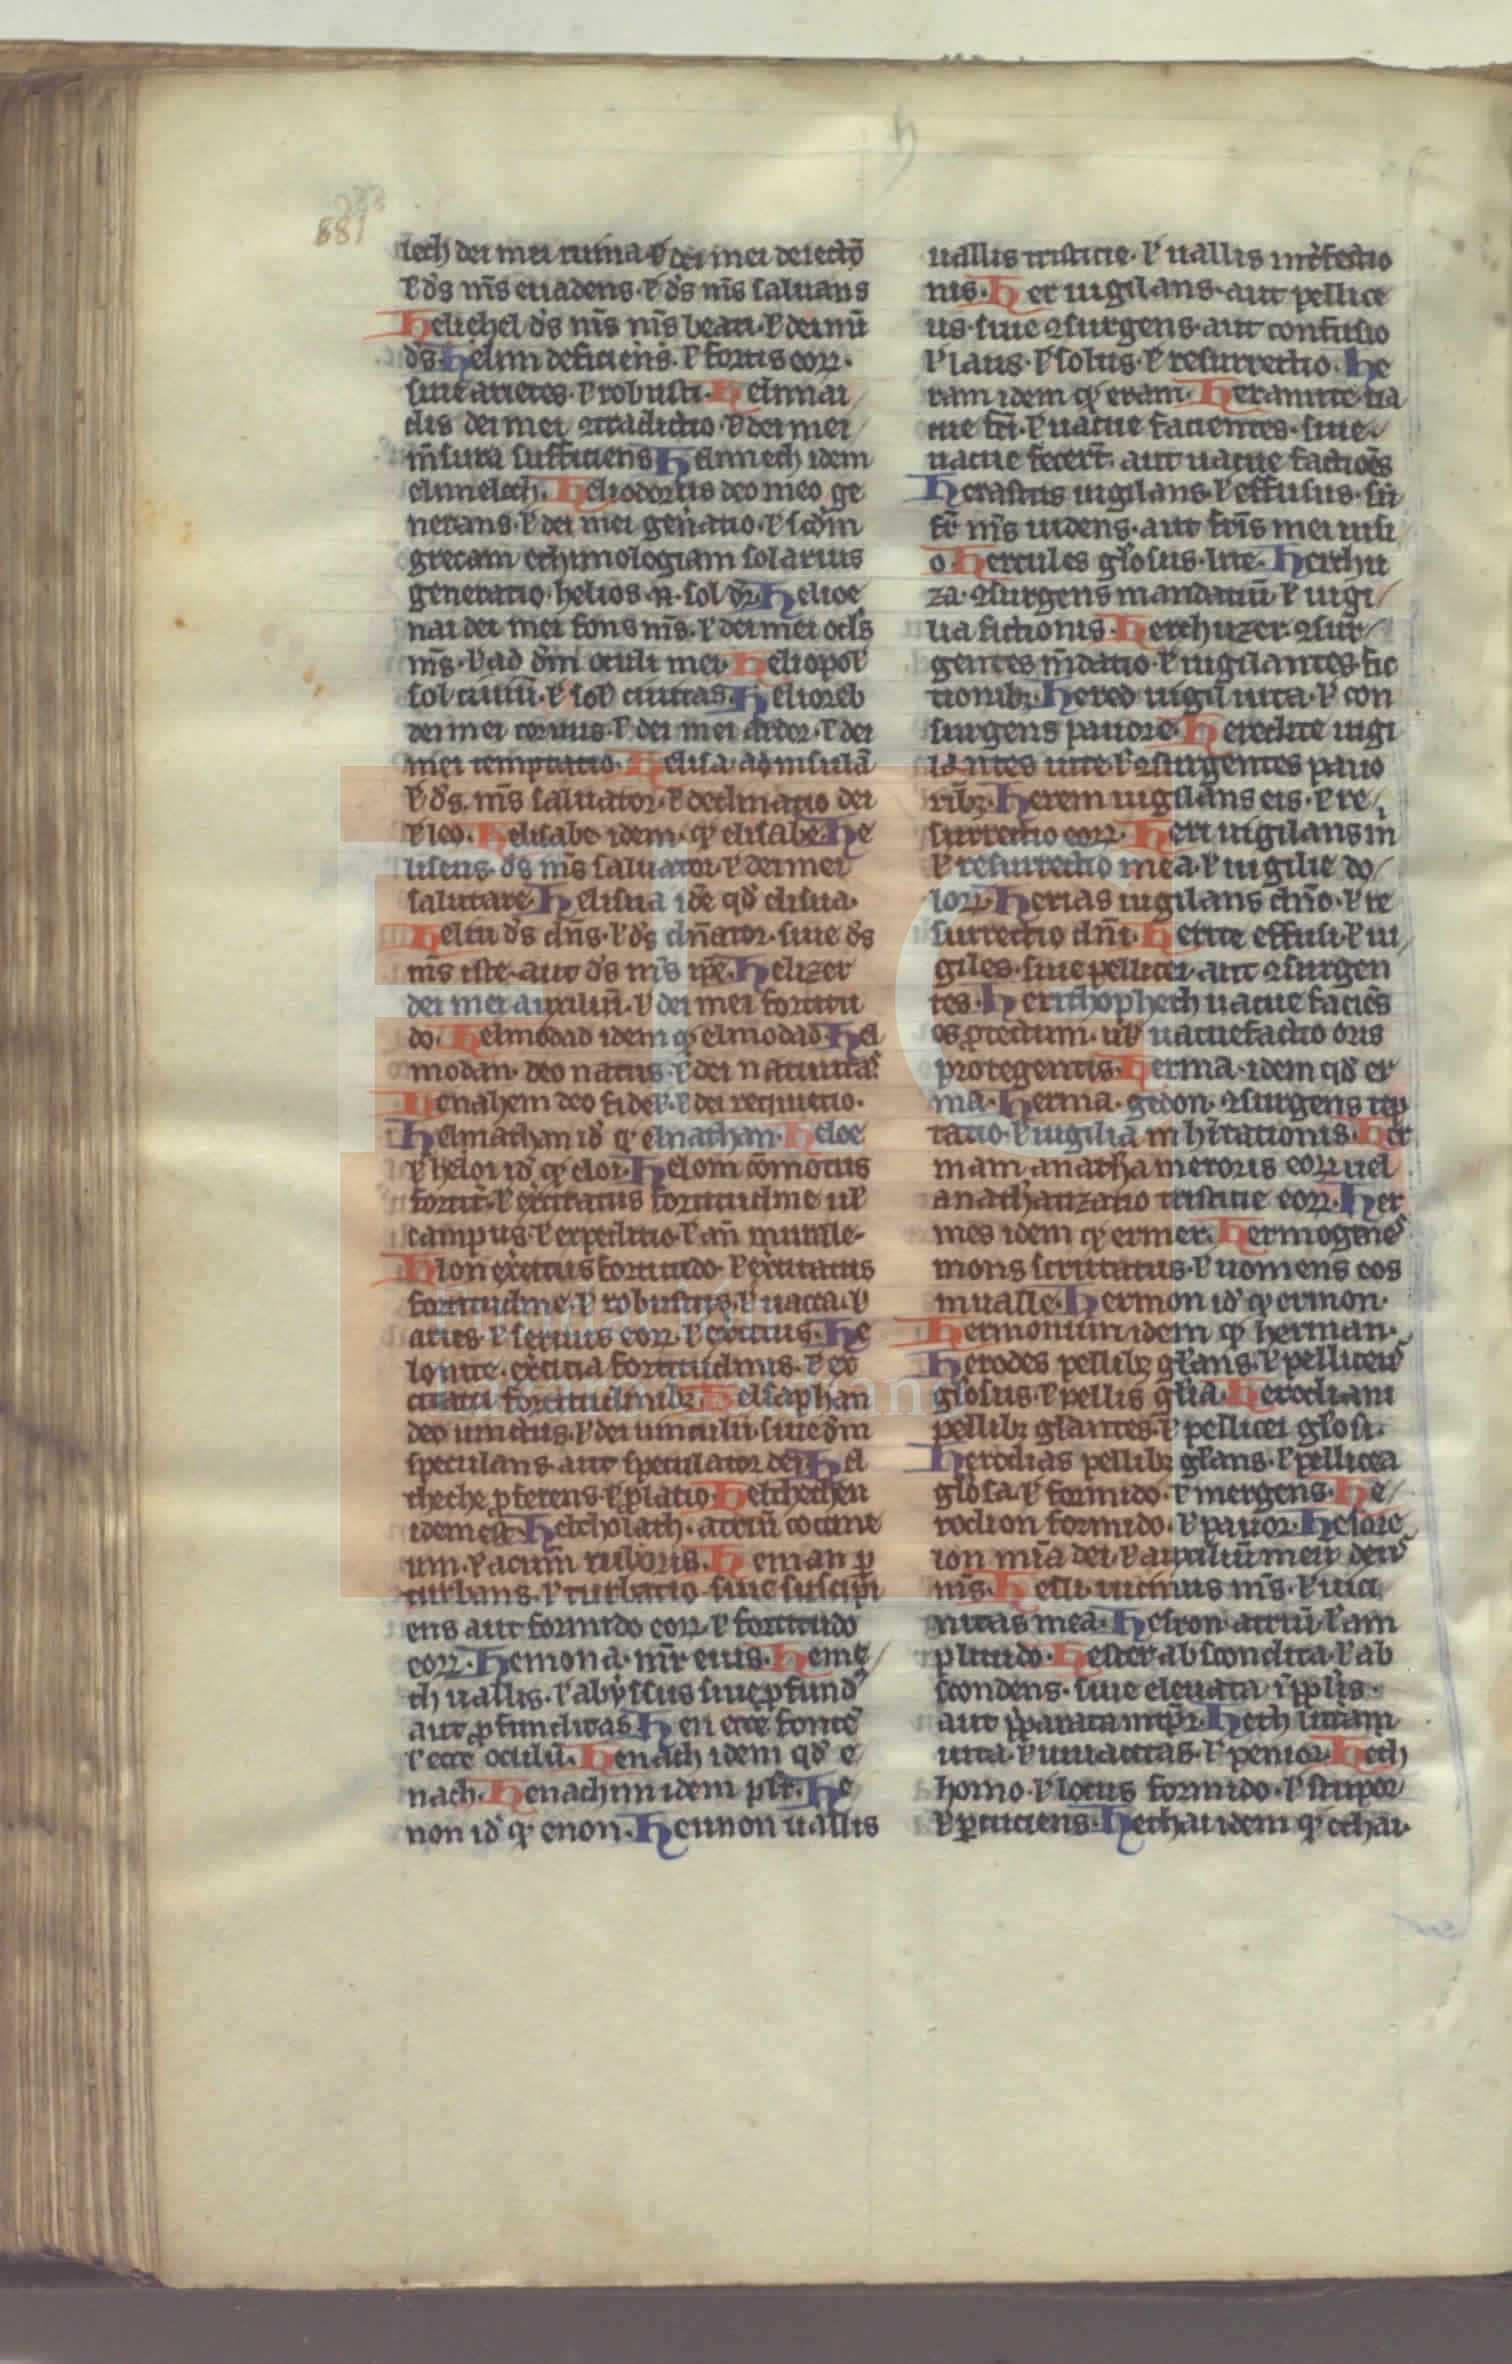 h
681
lech dei mei ruina ł dei mei deiectō
ł d̄s nr̄s euadens. ł d̄s nr̄s saluans
Helichel d̄s nr̄s nr̄s beati. ł dei mī
d̄s. Helim deficiens. ł fortis eoꝝ.
siue arietes. ł robusti. Helimai
dis dei mei ꝯtradictio. ł dei mei
m̄sura sufficiens Helimech idem
elimelech. Heliodorus deo meo ge
nerans. ł dei mei gen̄atio. ł scd̄m
grecam ethimologiam solarius
generatio. helios. n. sol dr̄. Helioe
nai dei mei fons nr̄s. ł dei mei ocl̄s
nr̄s. ł ad d̄m oculi mei. Heliopoł
sol ciuiū. ł sol ciuitas. Helioreb
dei mei coruus. ł dei mei ardor. ł dei
mei temptatio. Helisa ad insulā
ł d̄s. nr̄s saluator. ł declinatio dei
ł leo. Helisabe idem. qđ elisabe. He
liseus. d̄s nr̄s saluator. ł dei mei
salutare. Helisua idē qđ elisua.
Heliu d̄s dn̄s. ł d̄s dn̄ator. siue d̄s
nr̄s iste. aut d̄s nr̄s ip̄e. Helizer
dei mei auxiliū. ł dei mei fortitu
do. Helmodad idem qđ elmodad. Hel
modan. deo natus. ł dei natiuitas.
Henahem deo fideł. ł dei requietio.
Helnathan id̄ qđ elnathan. Heloe
ł heloi id̄ qđ eloi. Helom cōmotus
fortit̄. ł excitatus fortitudine ul̄
campus. ł expeditio. ł an̄ murale.
Hlon exc̄itus fortitudo. ł exc̄itatus
fortitudine. ł robustus. ł uacca. ł
aries. ł seruus eoꝝ. ł exc̄itus. He
lonite. exc̄itia fortitudinis. ł ex
citati fortitudinibꝫ. Helsaphan
deo uinctus. ł dei uinculū. siue d̄m
speculans. aut speculator dei. Hel
cheche p̄ferens. ł p̄latio. Helchechen
idem est. Helcholath. aceruꝰ cocine
um. ł acum̄ ruboris. Heman ꝑ
turbans. ł turbatio. siue suscipi
ens aut formido eoꝝ. ł fortitudo
eoꝝ. Hemona. mr̄ eius. Heme
ch uallis. ł abyssus siue ꝓfundꝰ
aut ꝓfunditas Hen ecce fonte
ł ecce oculū. Henach idem qđ e
nach. Henachim idem pl̄r. He
non id̄ qđ enon. Hennon uallis
uallis tristicie. ł uallis int̄fectio
nis. Her uigilans. aut pellice
us. siue ꝯsurgens. aut confusio
ł laus. ł solus. ł resurrectio. He
ram idem qđ eram. Heramite ua
cue fr̄i. ł uacue facientes. siue.
uacue fecer̄t. aut uacue factiōes
Herastus uigilans. ł effusus. sū
fr̄ nr̄s uidens. aut fr̄is mei uisi
o Hercules gl̄osus. lite. Herchu
za. ꝯsurgens mandatiū. ł uigi
ua fictionis. Herchuzei. ꝯsur
gentes m̄datio. ł uigilantes fic
tionibꝫ. Hered uigil iuta. ł con
surgens pauore. Heredite uigi
lantes uite. ł ꝯsurgentes pauo
ribꝫ. Herem uigilans eis. ł re
surrectio eoꝝ. Heri uigilans m̄
ł resurrectio mea. ł uigilie do
loꝝ. Herias uigilans dn̄o. ł re
surrectio dn̄i. Herite effusi. ł ui
giles. siue pellicei. aut ꝯsurgen
tes. Herithophech uacue faciēs
os ꝓtectum. ul̄ uacuefactio oris
protegentis. Herma. idem qđ er
ma. Herma. gedon. ꝯsurgens tēp
tatio. ł uigilia inhītationis. Her
mam. anathama meroris eoꝝ uel
anathatizatio tristicie eoꝝ. Her
mes idem qđ ermer. Hermogenes
mons scrutatus. ł uomens eos
in ualle. Hermon id̄ qđ ermon.
Hermonium idem qđ herman.
Herodes pellibꝫ gl̄ans. ł pelliceus
gl̄osus. ł pellis gl̄ia. Herodiani
pellibꝫ gl̄antes. ł pellicei gl̄osi.
Herodias pellibꝫ gl̄ans. ł pellicea
gl̄osa. ł formido. ł mergens. He
rodion formido. ł pauor. Hesare
ion mīa dei. ł auxiliū meū deus
nr̄s. Hesli. uicinus nr̄s. ł uici
nitas mea. Hesron. atriū. ł am
plitudo. Hester abscondita. ł ab
scondens. siue eleuata ī pp̄lis.
aut p̄parata in tp̄r. Heth
uita. ł ł penior. Heth
homo. ł locus formido. ł stupor
ł ꝑcuciens. Hethai idem qđ ethai.